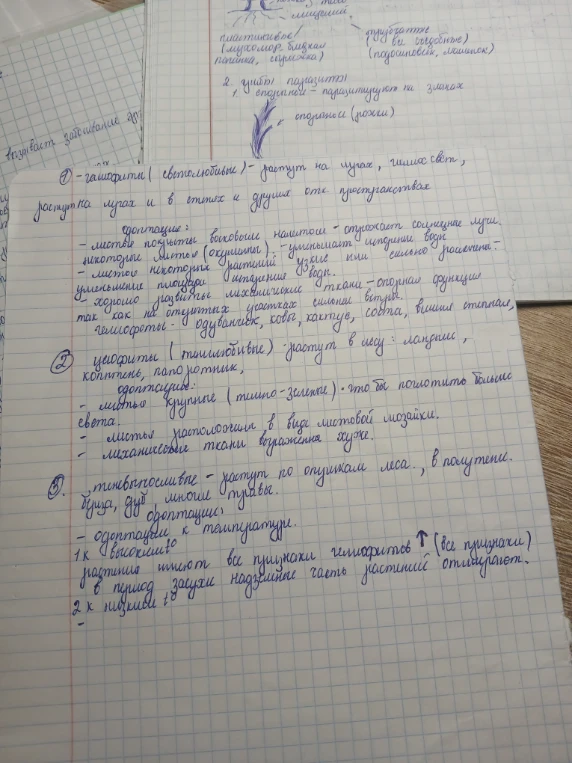 мицелий
пластинчатые трубчатые
(мухомор, бледная все съедобные)
поганка, (подосиновик, маслёнок)
2. грибы паразиты
1. спорынья - паразитируют на злаках
спорынья (рожки)
вызывает заболевание
① - гелиофиты (светолюбивые) - растут на лугах, гелиос свет,
растут на лугах и в степях и других отк пространствах
адоптации:
- листья покрыты восковыем налётом - отрожает солнечные лучи.
некоторые листья (опушины) - уменьшают испорение воды
- листья некоторых растений узкие или сильно розсечены -
уменьшение площади испорение воды.
- хорошо развиты механические ткани - опорная функция
так как на открытых участках сильные ветры.
гелиофоты - одуванчик, ковыль, кактус, вишня степная,
② циофиты (тенилюбивые) - растут в лесу: ландыш,
копытень, папоротник,
одоптации:
- листья крупные (темно-зеленые) - что бы поглотить больше
света.
- листья расположины в виде листовой мозайки.
- механические ткани возражения хуже.
3. теневыносливые - растут по опушкам леса, в полутене.
дуб, многие травы.
одоптации:
- одоптации к температуре.
1 к высоким t°
растения имеют все признаки гелиофитов ↑ (все признаки)
в период засухи надземные часть растений отмирают.
2 к низким t°
-